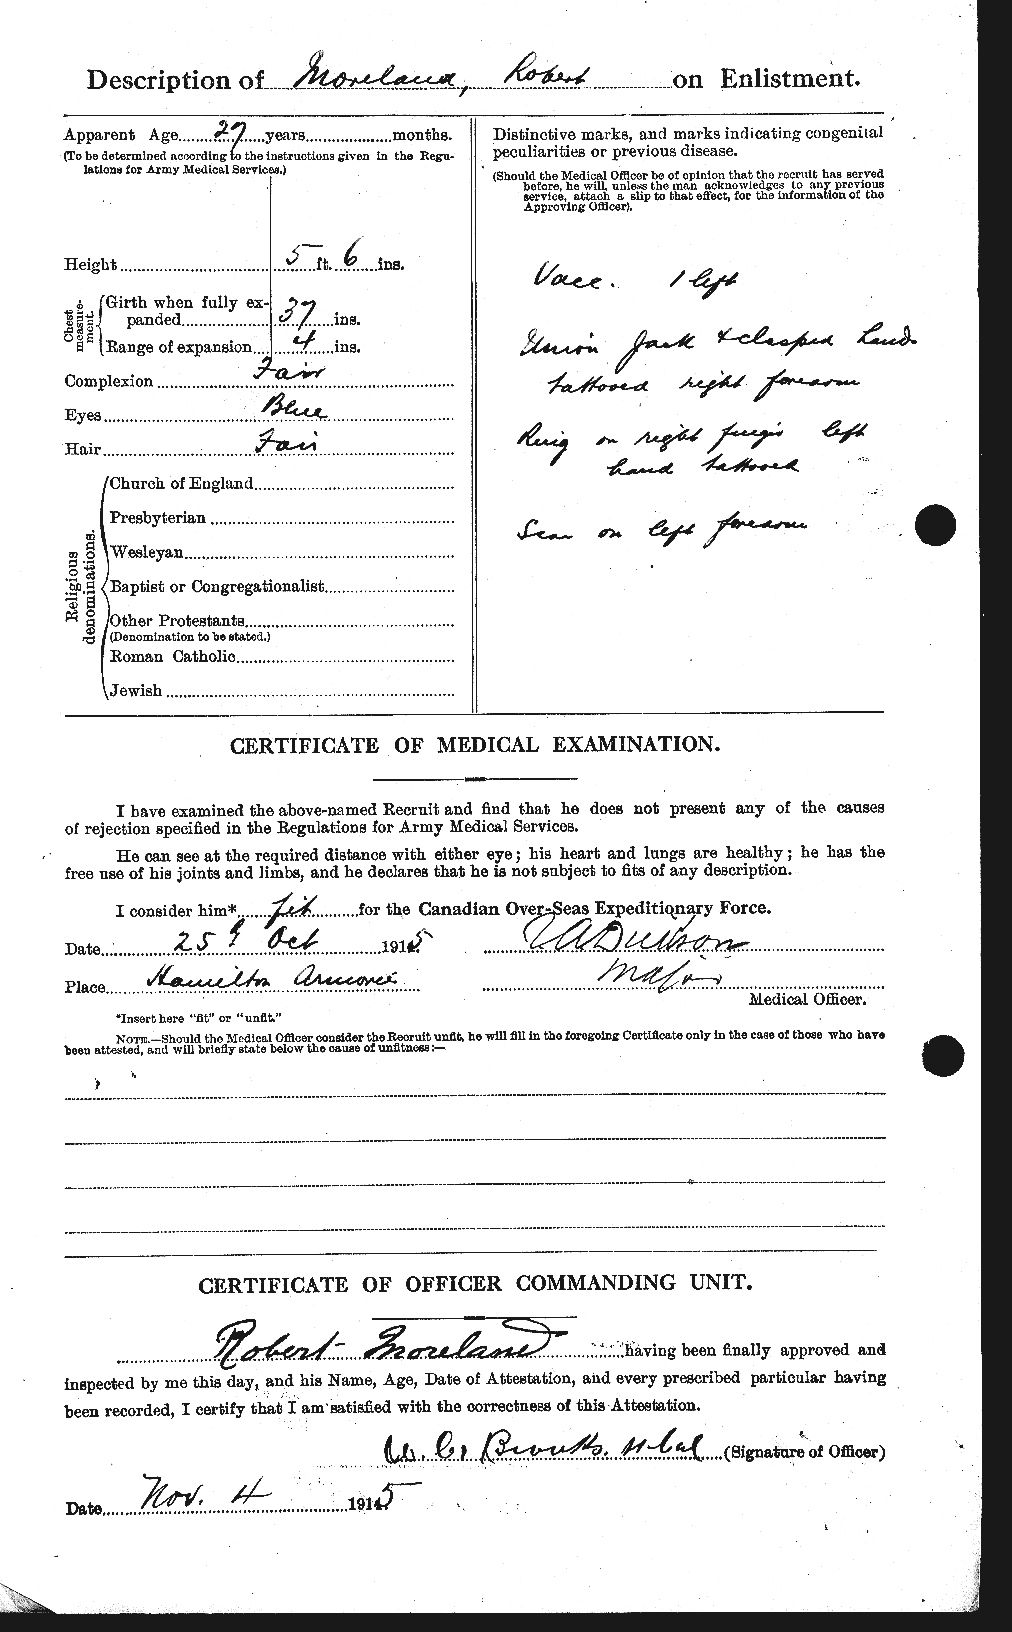 Description of Moreland, Robert on Enlistment.
Apparent Age 27 years months.
(To be determined according to the instructions given in the Regu-
lations for Army Medical Services.)
Height 5 ft. 6 ins.
Chest measure-ment.
Girth when fully ex-
panded 37 ins.
Range of expansion 4 ins.
Complexion Fair
Eyes Blue
Hair Fair
Religious denominations.
Church of England
Presbyterian
Wesleyan
Baptist or Congregationalist
Other Protestants
(Denomination to be stated.)
Roman Catholic
Jewish
Distinctive marks, and marks indicating congenital
peculiarities or previous disease.
(Should the Medical Officer be of opinion that the recruit has served
before, he will, unless the man acknowledges to any previous
service, attach a slip to that effect, for the information of the
Approving Officer).
Vacc. 1 left
Union Jack & clasped hands
tattooed right forearm
Ring on right left
hand tattooed
Scar on left forearm
CERTIFICATE OF MEDICAL EXAMINATION.
I have examined the above-named Recruit and find that he does not present any of the causes
of rejection specified in the Regulations for Army Medical Services.
He can see at the required distance with either eye; his heart and lungs are healthy; he has the
free use of his joints and limbs, and he declares that he is not subject to fits of any description.
I consider him* fit for the Canadian Over-Seas Expeditionary Force.
Date 25 Oct 1915
Place Hamilton
Major
Medical Officer.
*Insert here "fit" or "unfit."
NOTE.—Should the Medical Officer consider the Recruit unfit, he will fill in the foregoing Certificate only in the case of those who have
been attested, and will briefly state below the cause of unfitness:—
CERTIFICATE OF OFFICER COMMANDING UNIT.
Robert Moreland having been finally approved and
inspected by me this day, and his Name, Age, Date of Attestation, and every prescribed particular having
been recorded, I certify that I am satisfied with the correctness of this Attestation.
(Signature of Officer)
Date Nov. 4 1915